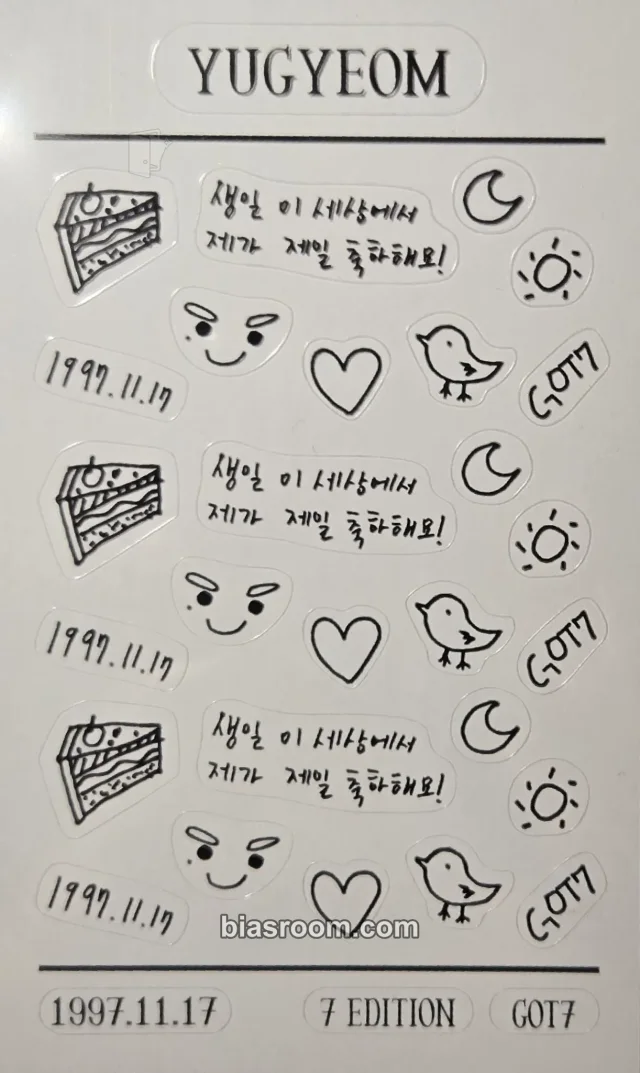 YUGYEOM
생일 이 세상에서
제가 제일 축하해요!
1997.11.17
GOT7
생일 이 세상에서
제가 제일 축하해요!
1997.11.17
GOT7
생일 이 세상에서
제가 제일 축하해요!
1997.11.17
GOT7
biasroom.com
1997.11.17 7 EDITION GOT7